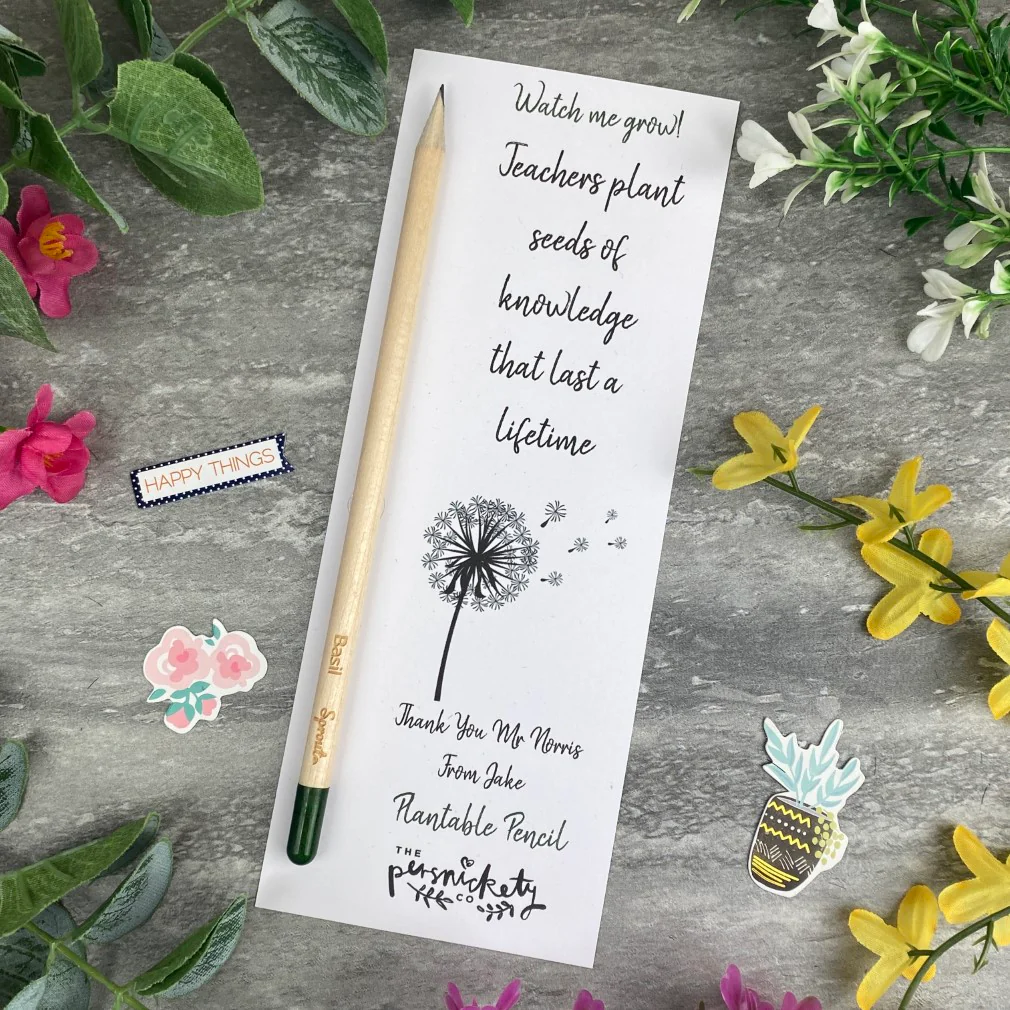 Watch me grow!
Teachers plant
seeds of
knowledge
that last a
lifetime
HAPPY THINGS
Basil Sprout
Thank You Mr Norris
From Jake
Plantable Pencil
THE
persnickety
CO